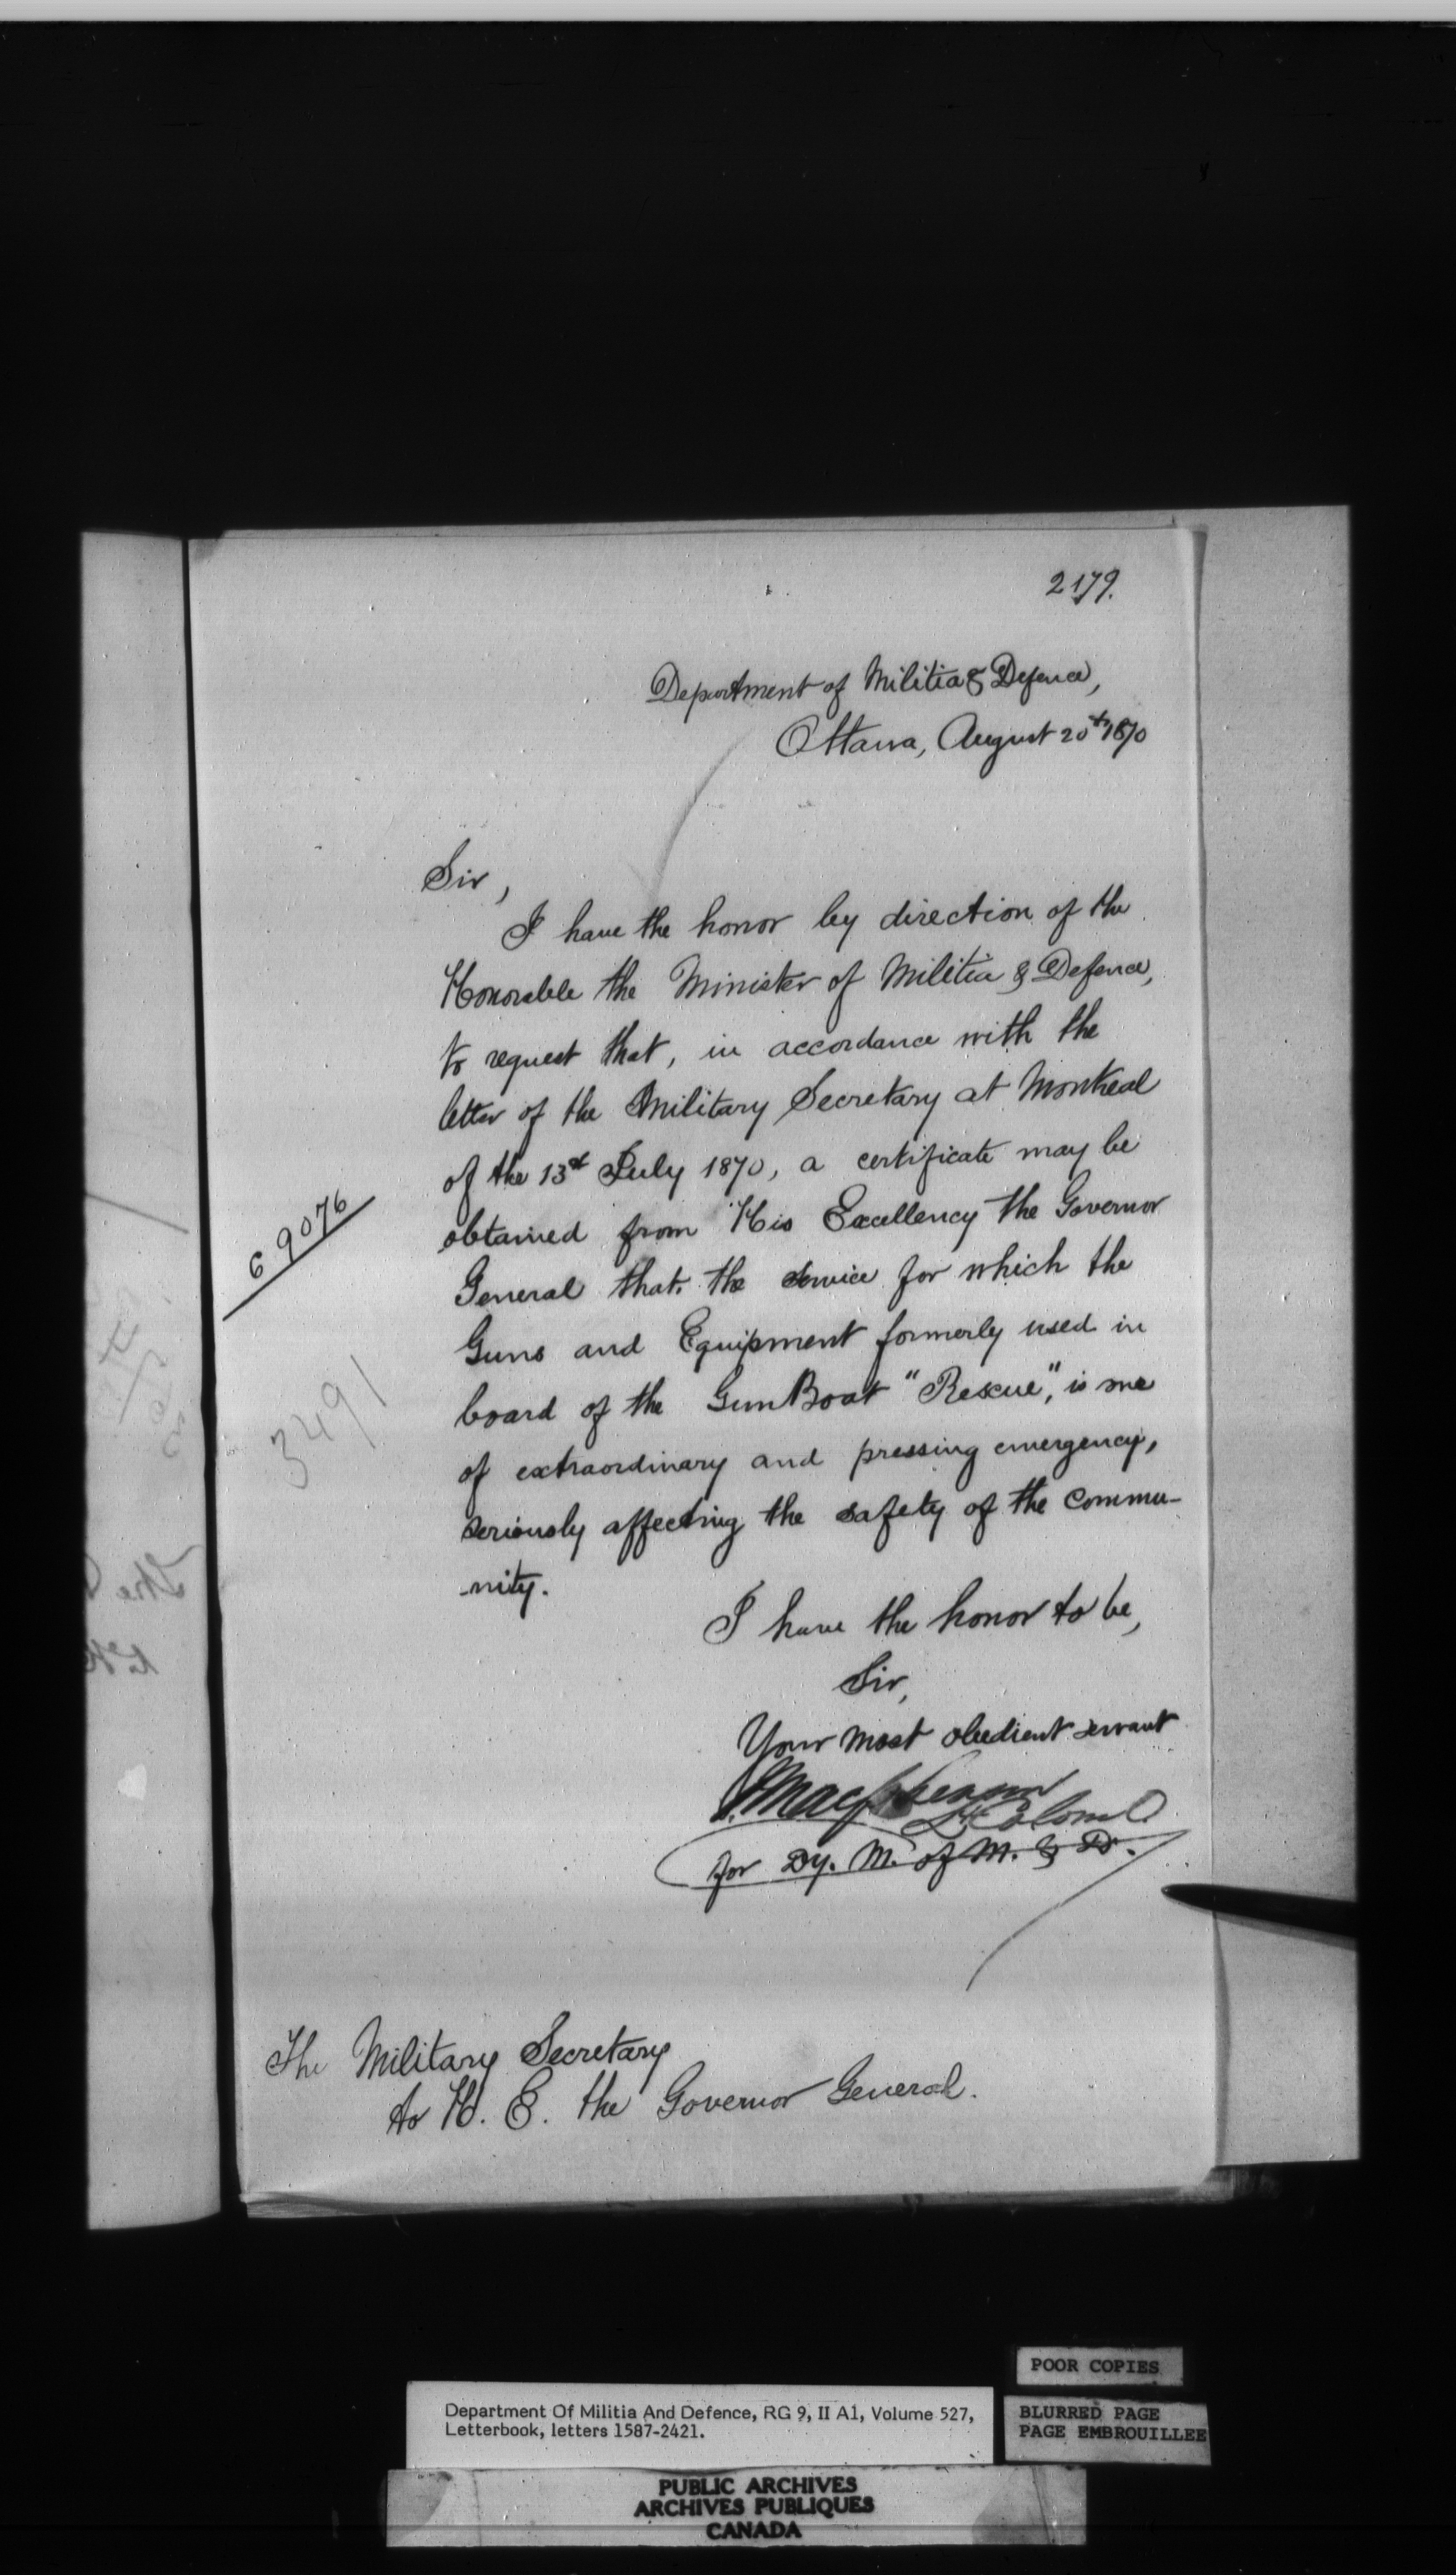 2179.
Department of Militia & Defence,
Ottawa, August 20th 1870
Sir,
I have the honor by direction of the
Honorable the Minister of Militia & Defence,
to request that, in accordance with the
letter of the Military Secretary at Montreal
of the 13th July 1870, a certificate may be
obtained from His Excellency the Governor
General that the service for which the
Guns and Equipment formerly used in
board of the Gun Boat "Rescue", is one
of extraordinary and pressing emergency,
seriously affecting the safety of the commu-
-nity.
69076
3491
I have the honor to be,
Sir,
Your most obedient servant
Lt Colonel
for Dy. M. of M. & D.
The Military Secretary
to H. E. the Governor General.
POOR COPIES
Department Of Militia And Defence, RG 9, II A1, Volume 527,
Letterbook, letters 1587-2421.
BLURRED PAGE
PAGE EMBROUILLEE
PUBLIC ARCHIVES
ARCHIVES PUBLIQUES
CANADA